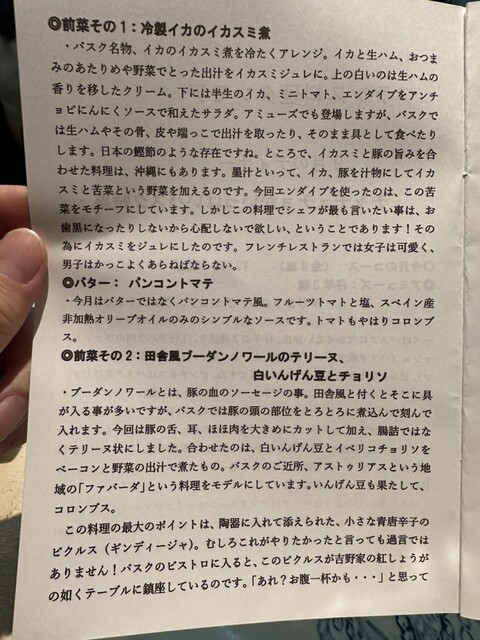 ◎前菜その1：冷製イカのイカスミ煮
・バスク名物、イカのイカスミ煮を冷たくアレンジ。イカと生ハム、おつま
みのあたりめや野菜でとった出汁をイカスミジュレに。上の白いのは生ハムの
香りを移したクリーム。下には半生のイカ、ミニトマト、エンダイブをアンチ
ョビにんにくソースで和えたサラダ。アミューズでも登場しますが、バスクで
は生ハムやその骨、皮や端っこで出汁を取ったり、そのまま具として食べたり
します。日本の鰹節のような存在ですね。ところで、イカスミと豚の旨みを合
わせた料理は、沖縄にもあります。墨汁といって、イカ、豚を汁物にしてイカ
スミと苦菜という野菜を加えるのです。今回エンダイブを使ったのは、この苦
菜をモチーフにしています。しかしこの料理でシェフが最も言いたい事は、お
歯黒になったりしないから心配しないで欲しい、ということであります！そ
の為にイカスミをジュレにしたのです。フレンチレストランでは女子は可愛く、
男子はかっこよくあらねばならない。
◎バター： パンコントマテ
・今月はバターではなくパンコントマテ風。フルーツトマトと塩、スペイン産
非加熱オリーブオイルのみのシンプルなソースです。トマトもやはりコロンブ
ス。
◎前菜その2：田舎風ブーダンノワールのテリーヌ、
白いんげん豆とチョリソ
・ブーダンノワールとは、豚の血のソーセージの事。田舎風と付くとそこに具
が入る事が多いですが、バスクでは豚の頭の部位をとろとろに煮込んで刻んで
入れます。今回は豚の舌、耳、ほほ肉を大きめにカットして加え、腸詰ではな
くテリーヌ状にしました。合わせたのは、白いんげん豆とイベリコチョリソを
ベーコンと野菜の出汁で煮たもの。バスクのご近所、アストゥリアスという地
域の「ファバーダ」という料理をモデルにしています。いんげん豆も果たして、
コロンブス。
この料理の最大のポイントは、陶器に入れて添えられた、小さな青唐辛子の
ピクルス（ギンディージャ）。むしろこれがやりたかったと言っても過言では
ありません！バスクのビストロに入ると、このピクルスが吉野家の紅しょうが
の如くテーブルに鎮座しているのです。「あれ？お腹一杯かも・・・」と思って